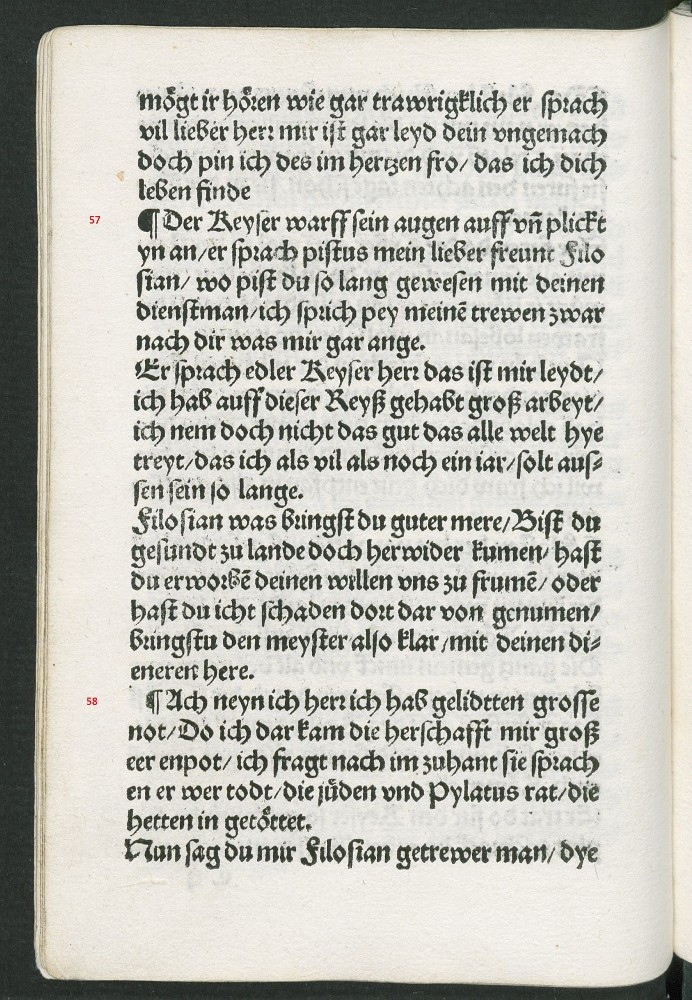 mögt ir hören wie gar trawrigklich er sprach
vil lieber herr mir ist gar leyd dein vngemach
doch pin ich des im hertzen fro/ das ich dich
leben finde
57 ¶ Der Keyser warff sein augen auff vn̄ plickt
yn an/ er sprach pistus mein lieber freunt Filo
sian/ wo pist du so lang gewesen mit deinen
dienstman/ ich sprich pey meinē trewen zwar
nach dir was mir gar ange.
Er sprach edler Keyser herr das ist mir leydt/
ich hab auff dieser Reyß gehabt groß arbeyt/
ich nem doch nicht das gut das alle welt hye
treyt/ das ich als vil als noch ein iar/ solt aus⸗
sen sein so lange.
Filosian was bringst du guter mere/ Bist du
gesundt zu lande doch her wider kumen/ hast
du erworbē deinen willen vns zu frumē/ oder
hast du icht schaden dort dar von genumen/
bringstu den meyster also klar/ mit deinen di⸗
eneren here.
58 ¶ Ach neyn ich herr ich hab gelidtten grosse
not/ Do ich dar kam die herschafft mir groß
eer enpot/ ich fragt nach im zuhant sie sprach
en er wer todt/ die jüden vnd Pylatus rat/ die
hetten in getöttet.
Nun sag du mir Filosian getrewer man/ dye